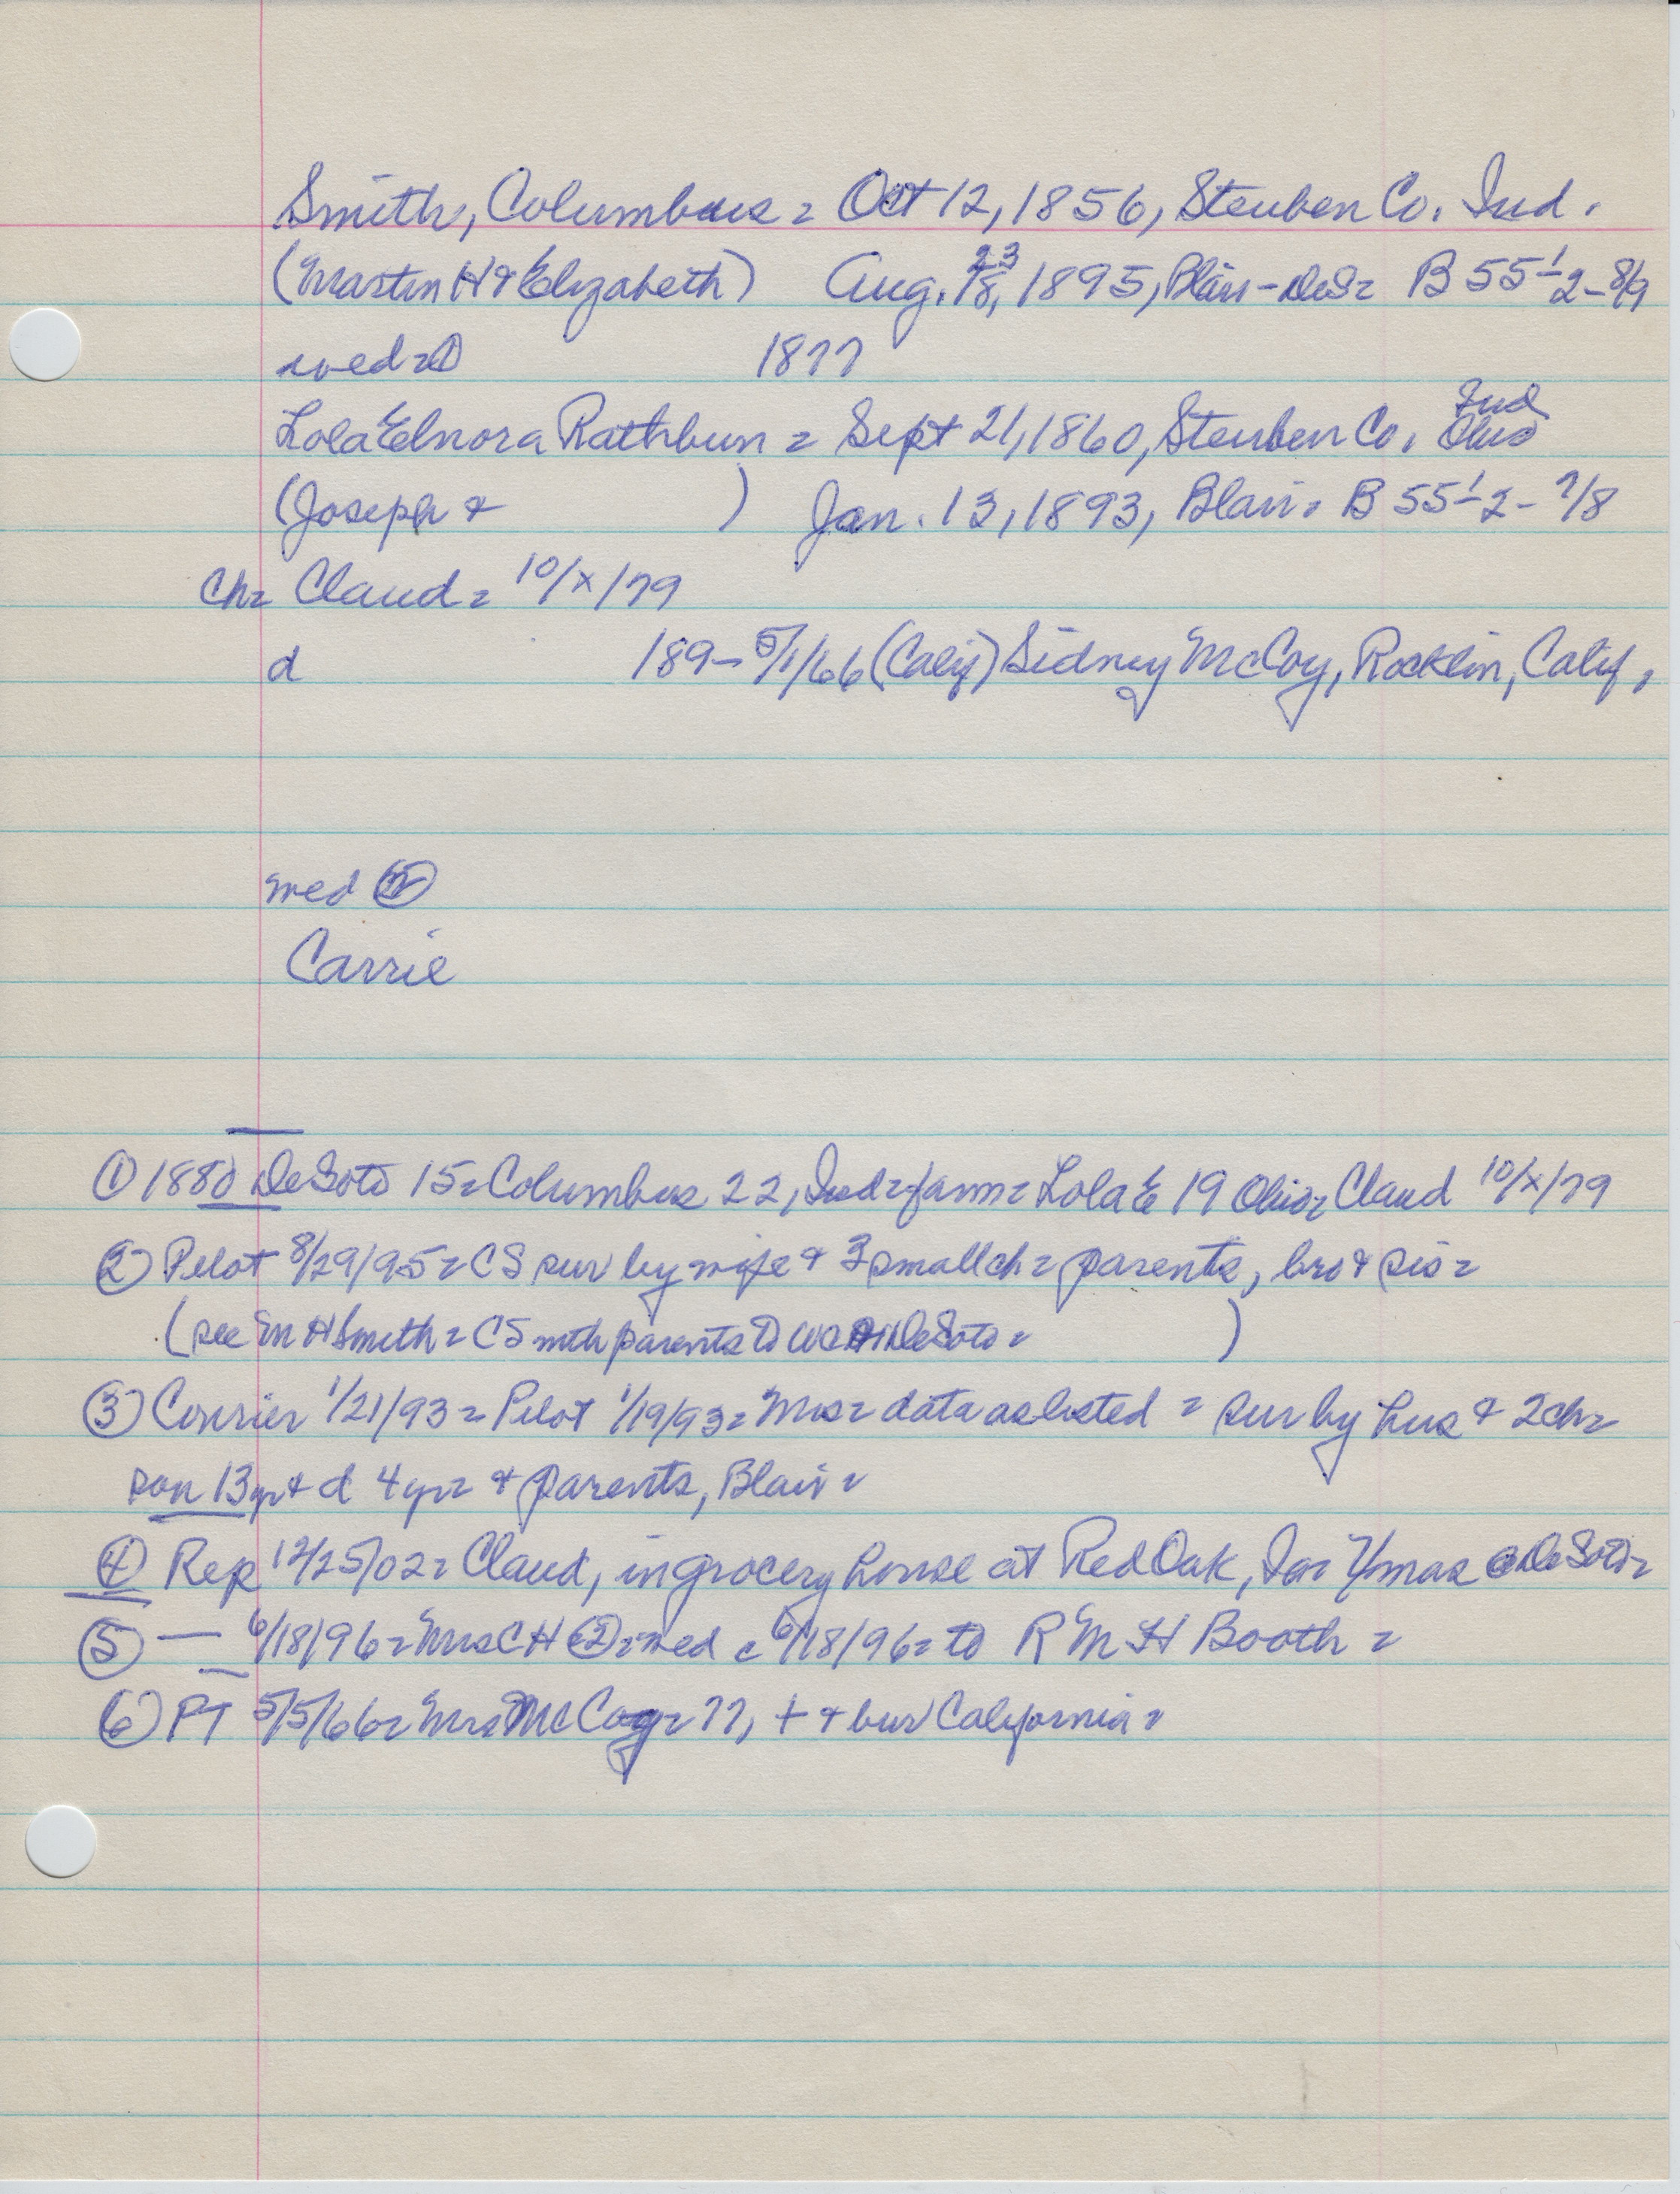 Smith, Columbus = Oct 12, 1856, Steuben Co. Ind.
(Martin H & Elizabeth) Aug. 23 18, 1895, Blair - DeS = B 55 1/2 - 8/9
wed = ① 1877
Lola Elnora Rathbun = Sept 21, 1860, Steuben Co. Ind Ohio
(Joseph & ) Jan. 13, 1893, Blair = B 55 1/2 - 7/8
Ch = Claud = 10/x/79
d 189- 5/1/66 (Calif) Sidney McCoy, Rocklin, Calif,
wed ②
Carrie
① 1880 DeSoto 15 = Columbus 22, Ind = farm = Lola E 19 Ohio = Claud 10/x/79
② Pilot 8/29/95 = CS sur by wife & 3 small ch = parents, bro & sis =
(see M H Smith = CS with parents to DeSoto = )
③ Courier 1/21/93 = Pilot 1/19/93 = Mrs = data as listed = sur by hus & 2 ch =
son 13 yr & d 4 yr = & parents, Blair =
④ Rep 12/25/02 = Claud, in grocery house at Red Oak, Ia = Xmas @ DeSoto =
⑤ — 6/18/96 = Mrs C H ② = wed c 6/18/96 = to R M H Booth =
⑥ PT 5/5/66 = Mrs McCoy = 77, + & bur California =